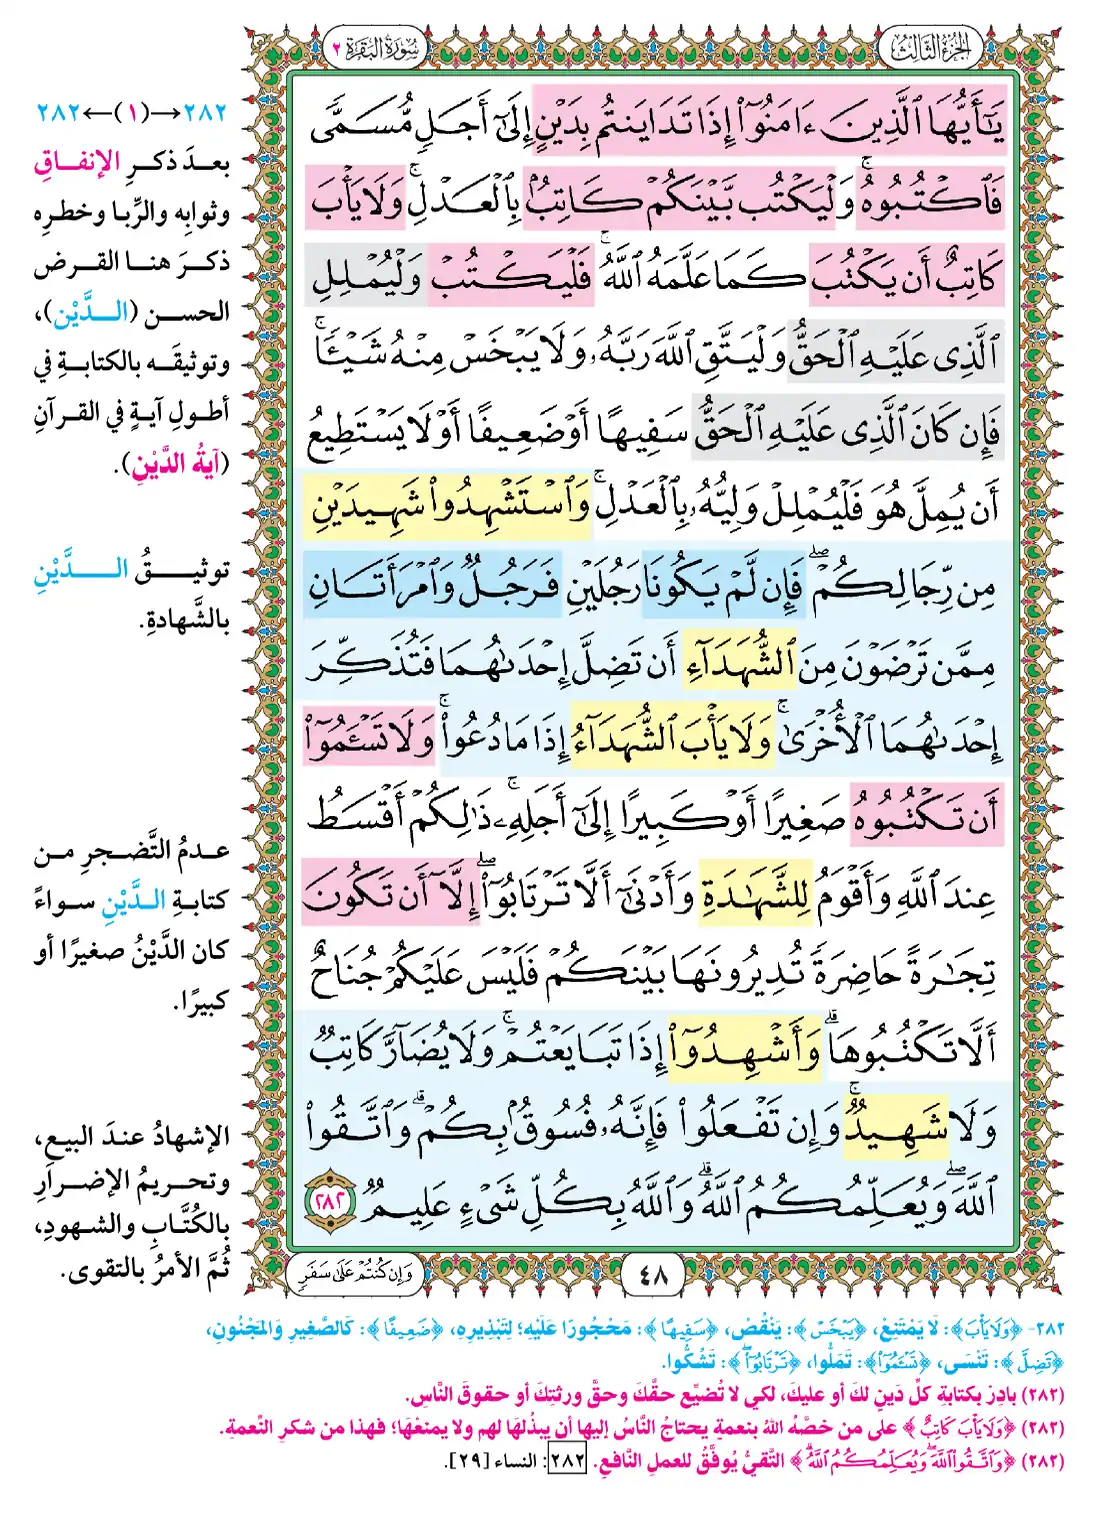 الجزء الثالث
سورة البقرة ٢
يَـٰٓأَيُّهَا ٱلَّذِينَ ءَامَنُوٓا۟ إِذَا تَدَايَنتُم بِدَيْنٍ إِلَىٰٓ أَجَلٍ مُّسَمًّى
فَٱكْتُبُوهُ ۚ وَلْيَكْتُب بَّيْنَكُمْ كَاتِبٌۢ بِٱلْعَدْلِ ۚ وَلَا يَأْبَ
كَاتِبٌ أَن يَكْتُبَ كَمَا عَلَّمَهُ ٱللَّهُ ۚ فَلْيَكْتُبْ وَلْيُمْلِلِ
ٱلَّذِى عَلَيْهِ ٱلْحَقُّ وَلْيَتَّقِ ٱللَّهَ رَبَّهُۥ وَلَا يَبْخَسْ مِنْهُ شَيْـًٔا ۚ
فَإِن كَانَ ٱلَّذِى عَلَيْهِ ٱلْحَقُّ سَفِيهًا أَوْ ضَعِيفًا أَوْ لَا يَسْتَطِيعُ
أَن يُمِلَّ هُوَ فَلْيُمْلِلْ وَلِيُّهُۥ بِٱلْعَدْلِ ۚ وَٱسْتَشْهِدُوا۟ شَهِيدَيْنِ
مِن رِّجَالِكُمْ ۖ فَإِن لَّمْ يَكُونَا رَجُلَيْنِ فَرَجُلٌ وَٱمْرَأَتَانِ
مِمَّن تَرْضَوْنَ مِنَ ٱلشُّهَدَآءِ أَن تَضِلَّ إِحْدَىٰهُمَا فَتُذَكِّرَ
إِحْدَىٰهُمَا ٱلْأُخْرَىٰ ۚ وَلَا يَأْبَ ٱلشُّهَدَآءُ إِذَا مَا دُعُوا۟ ۚ وَلَا تَسْـَٔمُوٓا۟
أَن تَكْتُبُوهُ صَغِيرًا أَوْ كَبِيرًا إِلَىٰٓ أَجَلِهِۦ ۚ ذَٰلِكُمْ أَقْسَطُ
عِندَ ٱللَّهِ وَأَقْوَمُ لِلشَّهَـٰدَةِ وَأَدْنَىٰٓ أَلَّا تَرْتَابُوٓا۟ ۖ إِلَّآ أَن تَكُونَ
تِجَـٰرَةً حَاضِرَةً تُدِيرُونَهَا بَيْنَكُمْ فَلَيْسَ عَلَيْكُمْ جُنَاحٌ
أَلَّا تَكْتُبُوهَا ۗ وَأَشْهِدُوٓا۟ إِذَا تَبَايَعْتُمْ ۚ وَلَا يُضَآرَّ كَاتِبٌ
وَلَا شَهِيدٌ ۚ وَإِن تَفْعَلُوا۟ فَإِنَّهُۥ فُسُوقٌۢ بِكُمْ ۗ وَٱتَّقُوا۟
ٱللَّهَ ۖ وَيُعَلِّمُكُمُ ٱللَّهُ ۗ وَٱللَّهُ بِكُلِّ شَىْءٍ عَلِيمٌ ٢٨٢
وَإِن كُنتُمْ عَلَىٰ سَفَرٍ
٤٨
٢٨٢→(١)←٢٨٢
بعدَ ذكرِ الإنفاقِ
وثوابِه والرِّبا وخطرِه
ذكرَ هنا القرض
الحسن (الدَّيْن)،
وتوثيقَه بالكتابةِ في
أطولِ آيةٍ في القرآنِ
(آيةُ الدَّيْنِ).
توثيقُ الدَّيْنِ
بالشَّهادةِ.
عدمُ التَّضجرِ من
كتابةِ الدَّيْنِ سواءً
كان الدَّيْنُ صغيرًا أو
كبيرًا.
الإشهادُ عندَ البيعِ،
وتحريمُ الإضرارِ
بالكُتَّابِ والشهودِ،
ثُمَّ الأمرُ بالتقوى.
٢٨٢- ﴿وَلَا يَأْبَ﴾: لَا يَمْتَنِعْ، ﴿يَبْخَسْ﴾: يَنْقُصْ، ﴿سَفِيهًا﴾: مَحْجُورًا عَلَيْهِ؛ لِتَبْذِيرِهِ، ﴿ضَعِيفًا﴾: كَالصَّغِيرِ وَالمَجْنُونِ،
﴿تَضِلَّ﴾: تَنْسَى، ﴿تَسْـَٔمُوٓا۟﴾: تَمَلُّوا، ﴿تَرْتَابُوٓا۟﴾: تَشُكُّوا.
(٢٨٢) بادِرْ بكتابةِ كلِّ دَينٍ لكَ أو عليكَ، لكي لا تُضيِّع حقَّكَ وحقَّ ورثتِكَ أو حقوقَ النَّاسِ.
(٢٨٢) ﴿وَلَا يَأْبَ كَاتِبٌ﴾ على من خصَّهُ اللهُ بنعمةٍ يحتاجُ النَّاسُ إليها أن يبذُلَها لهم ولا يمنعْهَا؛ فهذا من شكرِ النِّعمةِ.
(٢٨٢) ﴿وَٱتَّقُوا۟ ٱللَّهَ ۖ وَيُعَلِّمُكُمُ ٱللَّهُ ۗ﴾ التَّقيُّ يُوفَّقُ للعملِ النَّافعِ. ٢٨٢: النساء [٢٩].